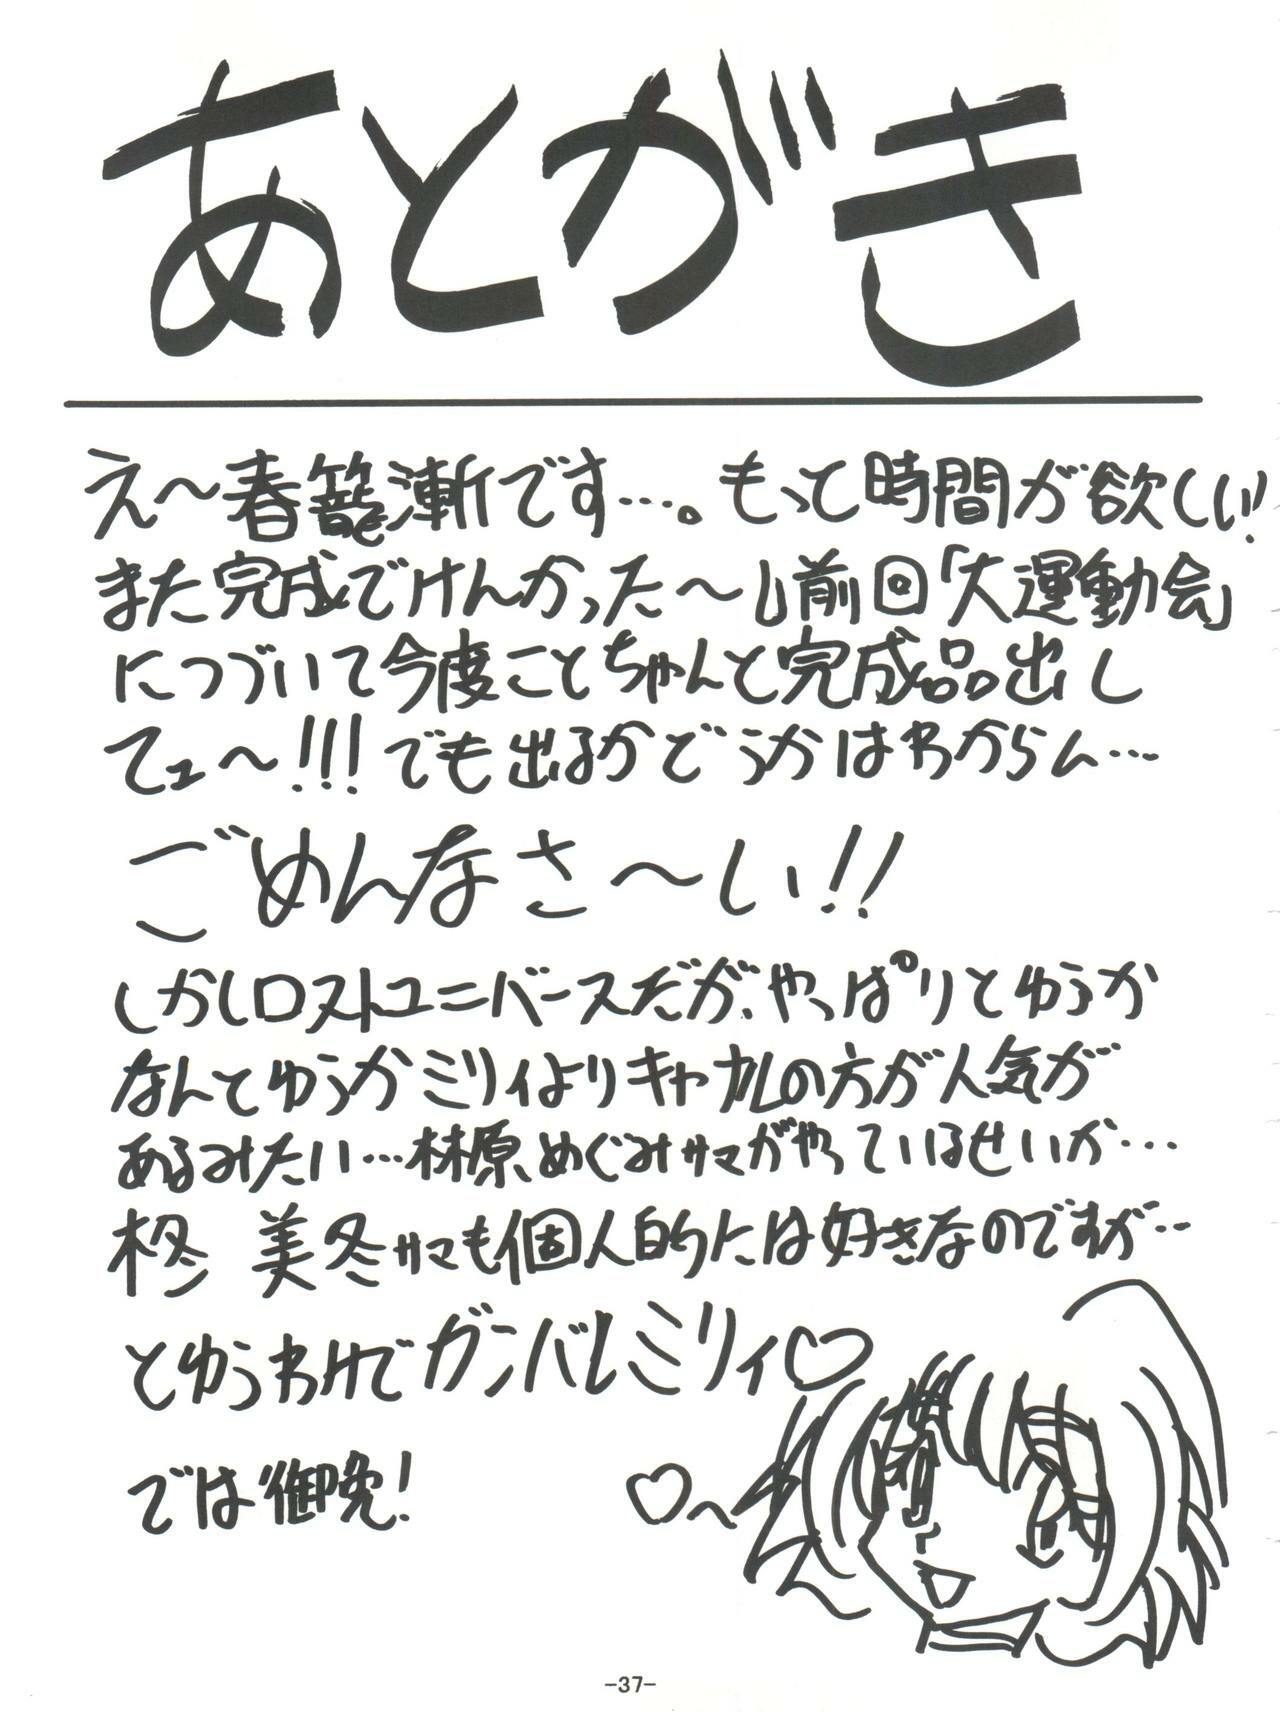 あとがき
え〜春籠漸です…。もって時間が欲しい!
また完成でけんかった〜し前回「大運動会」
につづいて今度ことちゃんと完成品出し
てェ〜!!!でも出るかどうかはわからん…
ごめんなさ〜い!!
しかしロストユニバースだが、やっぱりとゆうか
なんとゆうかミリィよりキャナルの方が人気が
あるみたい…林原めぐみサマがやっているせいか…
柊 美冬サマも個人的には好きなのですが…
とゆうわけでガンバレミリィ♡
では御免!
♡〜
-37-